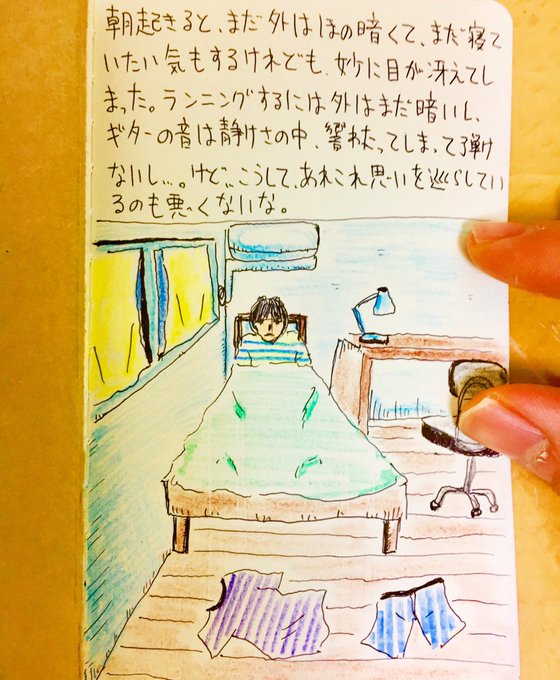 朝起きると、まだ外はほの暗くて、まだ寝て
いたい気もするけれども、妙に目が冴えてし
まった。ランニングするには外はまだ暗いし、
ギターの音は静けさの中、響わたってしまって弾け
ないし…。けど、こうして、あれこれ思いを巡らしてい
るのも悪くないな。